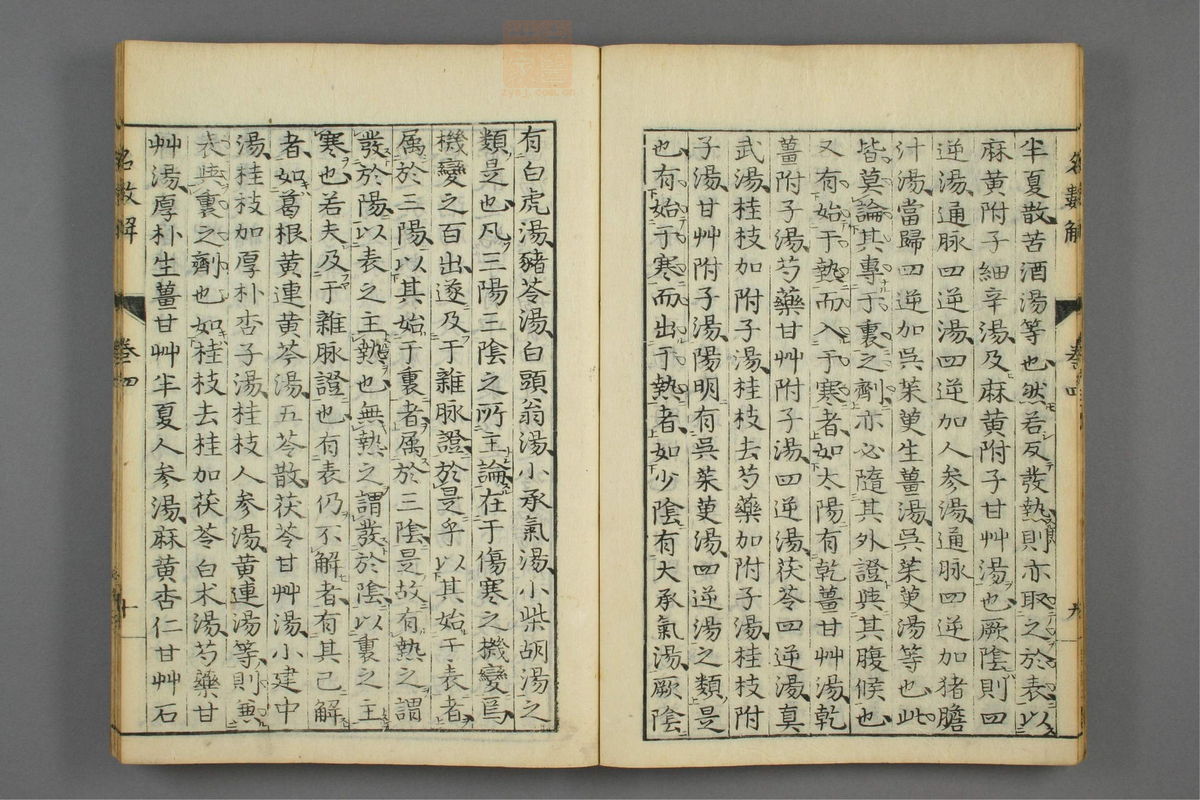 半夏散苦酒湯等也然若反發熱則亦取之於表以
麻黄附子細辛湯及麻黄附子甘艸湯也厥陰則四
逆湯通脉四逆湯四逆加人参湯通脉四逆加猪膽
汁湯當歸四逆加呉茱萸生薑湯呉茱萸湯等也此
皆莫論其專于裏之劑亦必隨其外證與其腹候也
又有始于熱而入于寒者如太陽有乾薑甘艸湯乾
薑附子湯芍藥甘艸附子湯四逆湯茯苓四逆湯真
武湯桂枝加附子湯桂枝去芍藥加附子湯桂枝附
子湯甘艸附子湯陽明有呉茱萸湯四逆湯之類是
也有始于寒而出于熱者如少陰有大承氣湯厥陰
名數解
卷四
九
有白虎湯豬苓湯白頭翁湯小承氣湯小柴胡湯之
類是也凡三陽三陰之所主論在于傷寒之機變焉
機變之百出遂及于雜脉證於是乎以其始于表者
属於三陽以其始于裏者属於三陰是故有熱之謂
發於陽以表之主熱也無熱之謂發於陰以裏之主
寒也若夫及于雜脉證也有表仍不解者有其已解
者如葛根黄連黄芩湯五苓散茯苓甘艸湯小建中
湯桂枝加厚朴杏子湯桂枝人参湯黄連湯等則兼
表與裏之劑也如桂枝去桂加茯苓白术湯芍藥甘
艸湯厚朴生薑甘艸半夏人参湯麻黄杏仁甘艸石
名數解
卷四
十